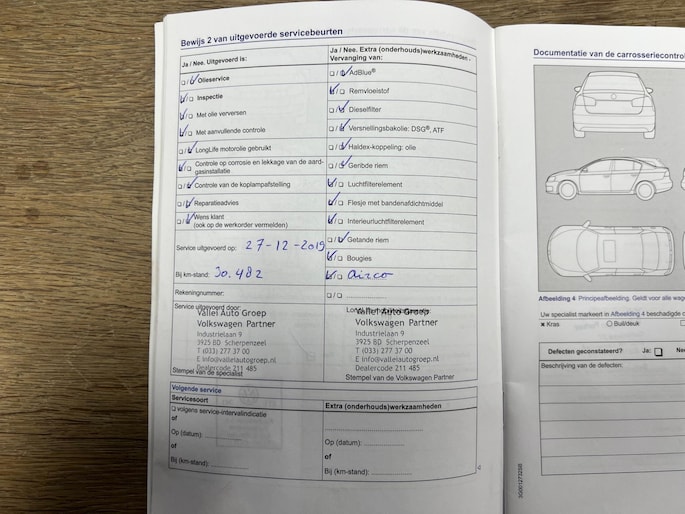 Bewijs 2 van uitgevoerde servicebeurten
Ja / Nee. Uitgevoerd is:
Ja / Nee. Extra (onderhouds)werkzaamheden - Vervanging van:
Olieservice
AdBlue®
Inspectie
Remvloeistof
Met olie verversen
Dieselfilter
Met aanvullende controle
Versnellingsbakolie: DSG®, ATF
LongLife motorolie gebruikt
Haldex-koppeling: olie
Controle op corrosie en lekkage van de aard-
gasinstallatie
Geribde riem
Controle van de koplampafstelling
Luchtfilterelement
Reparatieadvies
Flesje met bandenafdichtmiddel
Wens klant
(ook op de werkorder vermelden)
Interieurluchtfilterelement
Service uitgevoerd op: 27-12-2019
Getande riem
Bougies
Bij km-stand: 30.482
Airco
Rekeningnummer:
Service uitgevoerd door:
Vallei Auto Groep
Volkswagen Partner
Industrielaan 9
3925 BD Scherpenzeel
T (033) 277 37 00
E info@valleiautogroep.nl
Dealercode 211 485
Stempel van de specialist
Vallei Auto Groep
Volkswagen Partner
Industrielaan 9
3925 BD Scherpenzeel
T (033) 277 37 00
E info@valleiautogroep.nl
Dealercode 211 485
Stempel van de Volkswagen Partner
Volgende service
Servicesoort
Extra (onderhouds)werkzaamheden
volgens service-intervalindicatie
of
Op (datum):
of
Bij (km-stand):
Op (datum):
of
Bij (km-stand):
Documentatie van de carrosseriecontrol
Afbeelding 4 Principeafbeelding. Geldt voor alle wage
Uw specialist markeert in Afbeelding 4 beschadigde c
× Kras Buil/deuk
Defecten geconstateerd? Ja: Nee
Beschrijving van de defecten: